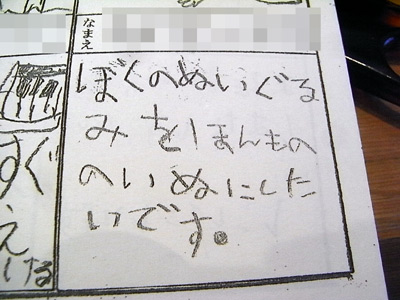 なまえ
ぼくのぬいぐる
みをほんもの
のいぬにした
いです。
すぐ
え
ける